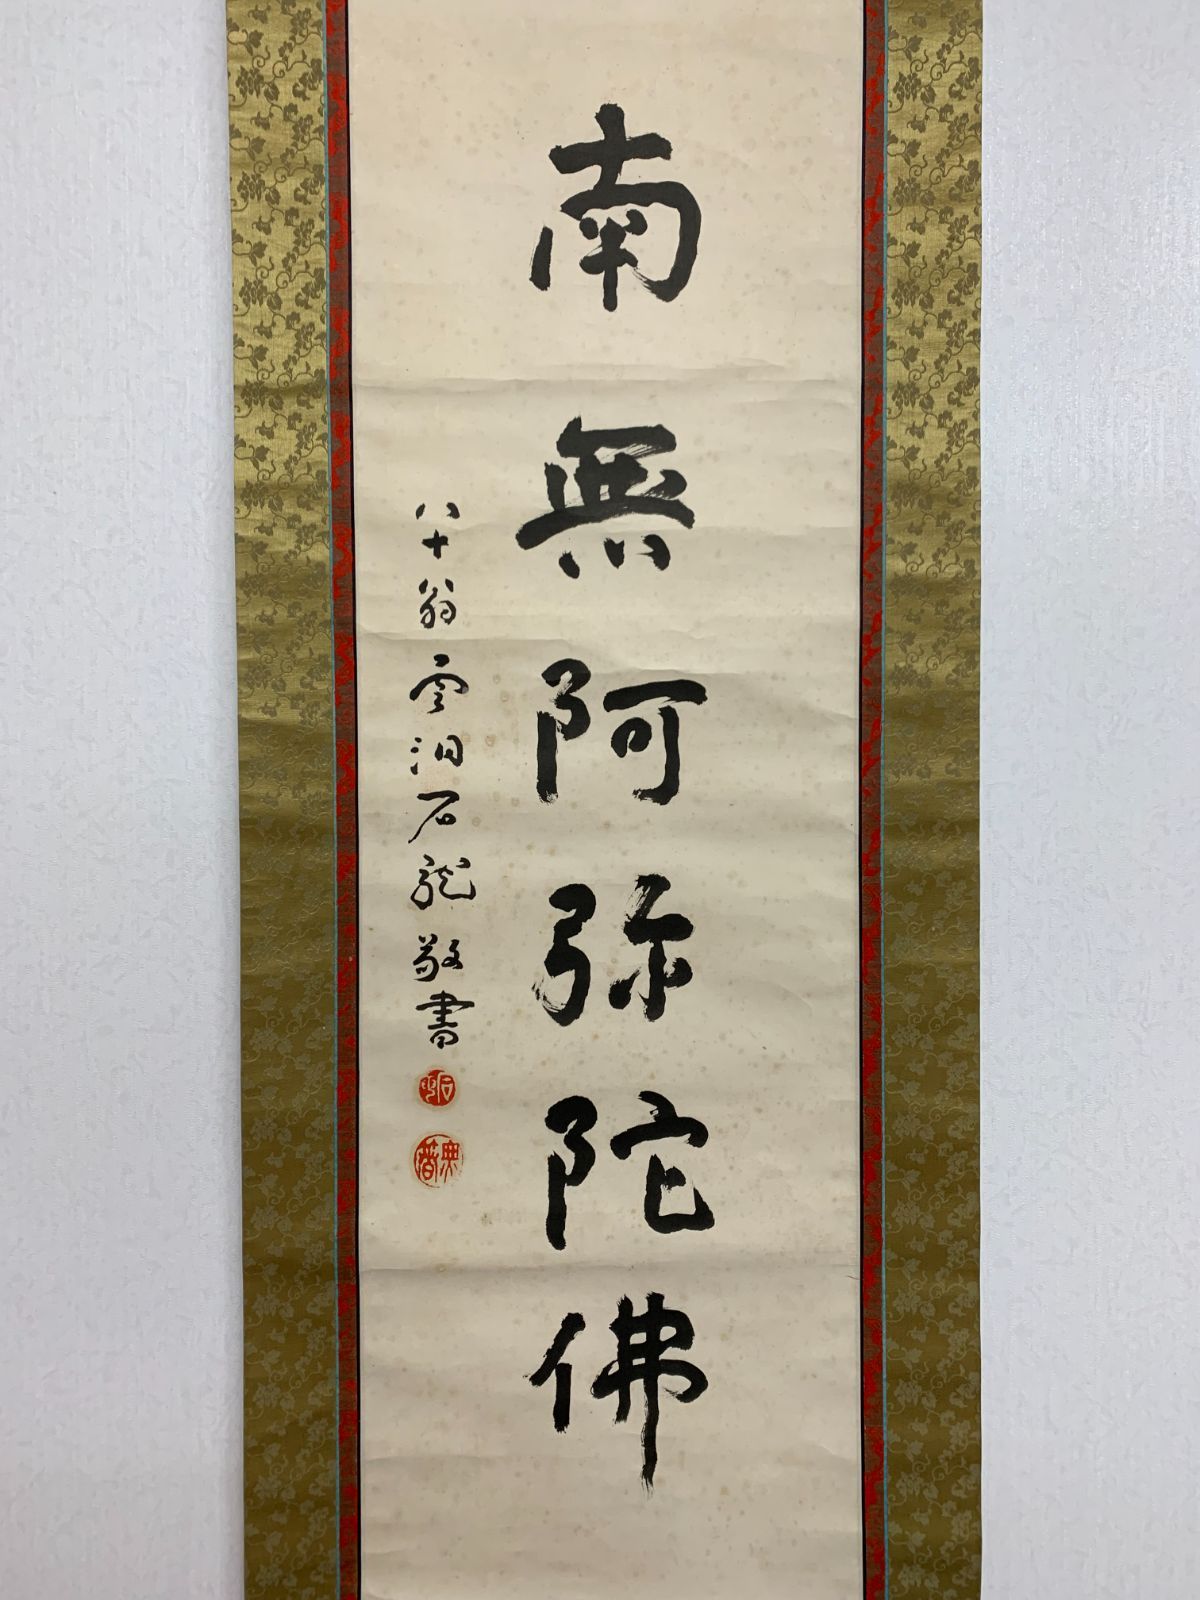 南無阿弥陀佛
八十翁雲泪石龍敬書